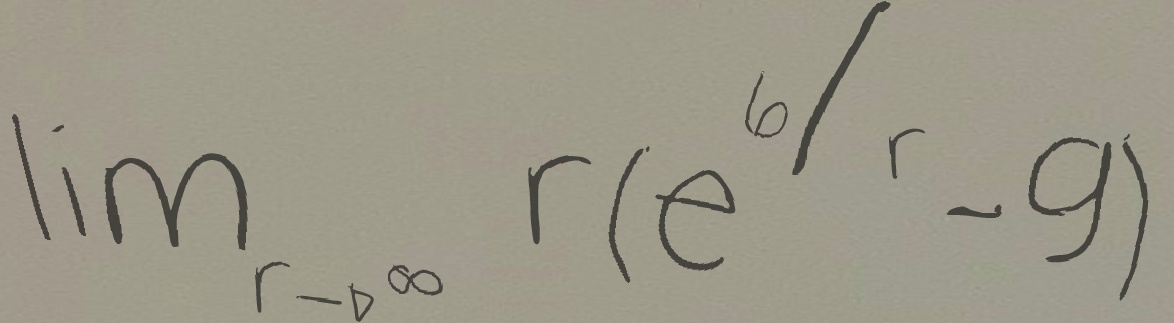 lim r→∞ r(e^6/r - 9)